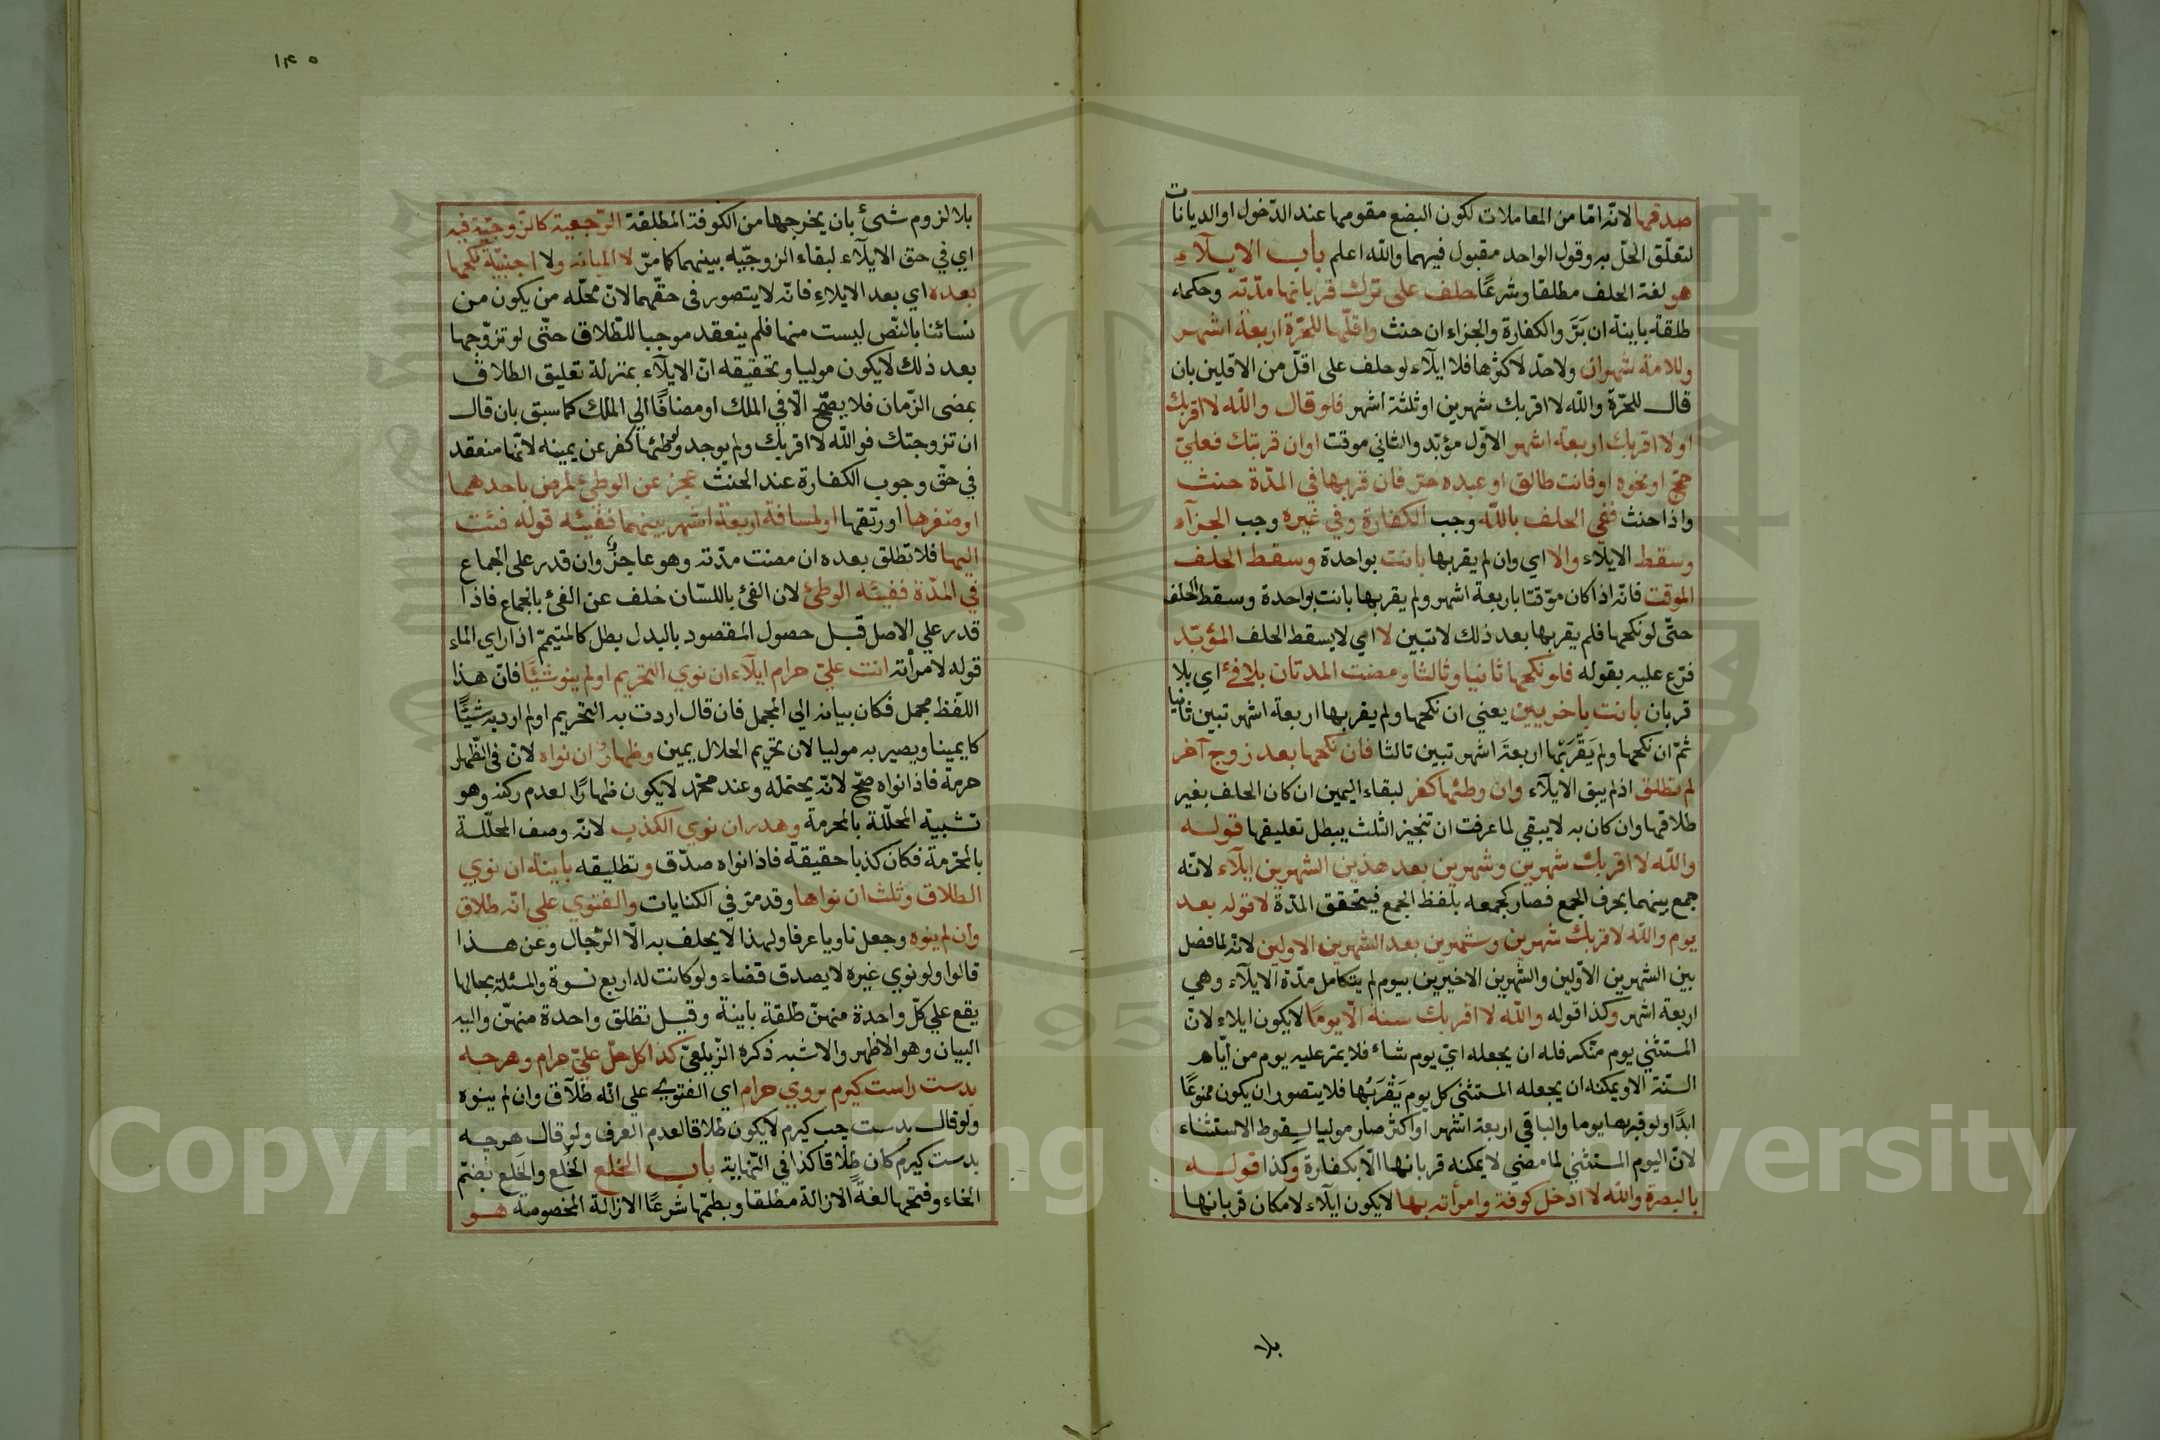 صدقها لانّه امّا من المعاملات لكون البضع مقوما عند الدّخول او الديانات
لتعلّق الحلّ به وقول الواحد مقبول فيهما والله اعلم باب الايلاء
هو لغة الحلف مطلقا وشرعًا حلف على ترك قربانها مدّته وحكمه
طلقة باينة ان برّ والكفارة والجزاء ان حنث واقلّها للحرّة اربعة اشهر
وللامة شهران ولا حدّ لاكثرها فلا ايلاء لو حلف على اقلّ من الاقلين بان
قال للحرّة والله لا اقربك شهرين او ثلثة اشهر فلو قال والله لا اقربك
او لا اقربك اربعة اشهر الاوّل مؤبّد والثاني موقت او ان قربتك فعليّ
حجّ او نحوه او فانت طالق او عبده حرّ فان قربها في المدّة حنث
واذا حنث ففي الحلف بالله وجب الكفارة وفي غيره وجب الجزاء
وسقط الايلاء والا اي وان لم يقربها بانت بواحدة وسقط الحلف
الموقت فانّه اذا كان موّقتا باربعة اشهر ولم يقربها بانت بواحدة وسقط الحلف
حتّى لو نكحها فلم يقربها بعد ذلك لا تبين لا اي لا يسقط الحلف المؤبّد
فرّع عليه بقوله فلو نكحها ثانيا وثالثا ومضت المدتان بلا فئ اي بلا
قربان بانت باخريين يعني ان نكحها ولم يقربها اربعة اشهر تبين ثانيا
ثمّ ان نكحها ولم يَقْرَبْها اربعةَ اشهر تبين ثالثا فان نكحها بعد زوج آخر
لم تطلق اذ لم يبق الايلاء وان وطئها كفر لبقاء اليمين ان كان الحلف بغير
طلاقها وان كان به لا يبقي لما عرفت ان تنجيز الثلث يبطل تعليقها قوله
والله لا اقربك شهرين وشهرين بعد هذين الشهرين ايلاء لانّه
جمع بينهما بحرف الجمع فصار كجمعه بلفظ الجمع فيتحقق المدّة لا قوله بعد
يوم والله لا قربك شهرين وشهرين بعد الشهرين الاولين لانّه لما فصل
بين الشهرين الاوّلين والشهرين الاخيرين بيوم لم يتكامل مدّة الايلاء وهي
اربعة اشهر وكذا قوله والله لا اقربك سنة الّا يومًا لا يكون ايلاء لانّ
المستثني يوم منكر فله ان يجعله ايّ يوم شاء فلا يمرّ عليه يوم من ايّام
السّنة الا ويمكنه ان يجعله المستثنى كل يوم يَقْرَبُها فلا يتصور ان يكون ممنوعًا
ابدًا ولو قربها يوما والباقي اربعة اشهر او اكثر صار موليا لسقوط الاستثناء
لانّ اليوم المستثني لما مضي لا يمكنه قربانها الّا بكفارة وكذا قوله
بالبصرة والله لا ادخل كوفة وامرأته بها لا يكون ايلاء لامكان قربانها
بلا
١٤٥
بلا لزوم شئ بان يخرجها من الكوفة المطلقة الرّجعية كالزّوجيّة فيه
اي في حق الايلاء لبقاء الزوجيّه بينهما كما مرّ لا المبانة ولا اجنبيّة نكحها
بعده اي بعد الايلاء فانّه لا يتصور في حقّهما لانّ محلّه من يكون من
نسائنا بالنّص ليست منها فلم ينعقد موجبا للطّلاق حتّى لو تزوّجها
بعد ذلك لا يكون موليا وتحقيقه انّ الايلاء بمنزلة تعليق الطلاق
بمضى الزّمان فلا يصحّ الّا في الملك او مضافًا الي الملك كما سبق بان قال
ان تزوجتك فوالله لا اقربك ولم يوجد وطئها كفر عن يمينه لانّها منعقد
في حقّ وجوب الكفارة عند الحنث عجز عن الوطئ لمرض باحدهما
او صغرها او رتقها او لمسافة اربعة اشهر بينهما ففيئه قوله فئت
اليها فلا تطلق بعده ان مضت مدّته وهو عاجز وان قدر على الجماع
في المدّة ففيئه الوطئ لان الفئ باللسّان خلف عن الفئ بالجماع فاذا
قدر علي الاصل قبل حصول المقصود بالبدل بطل كالمتيمّم اذا راي الماء
قوله لامرأته انت عليّ حرام ايلاء ان نوي التحريم او لم ينو شيًّا فانّ هذا
اللّفظ مجمل فكان بيانه الي المجمل فان قال اردت به التحريم او لم ارد به شيًّا
كا يمينا ويصير به موليا لان تحريم الحلال يمين وظهارٌ ان نواه لانّ في الظّهار
حرمة فاذا نواه صحّ لانّه يحتمله وعند محمّد لا يكون ظهارًا لعدم ركنه وهو
تشبيه المحلّلة بالمحرمة وهدر ان نوي الكذب لانّه وصف المحلّلة
بالمحرّمة فكان كذبا حقيقة فاذا نواه صدّق وتطليقه باينة ان نوي
الطلاق وثلث ان نواها وقد مرّ في الكنايات والفتوي علي انّه طلاق
وان لم ينوه وجعل ناويا عرفا ولهذا لا يحلف به الّا الرّجال وعن هذا
قالوا ولو نوي غيره لا يصدق قضاء ولو كانت له اربع نسوة والمسئلة بحالها
يقع علي كلّ واحدة منهنّ طلقة باينة وقيل تطلق واحدة منهنّ واليه
البيان وهو الاظهر والاشبه ذكره الزّيلعيّ كذا كل حلّ عليّ حرام وهرجه
بدست راست كيرم بروي حرام اي الفتوي علي انّه طلاق وان لم ينوه
ولو قال بدست چپ كيرم لا يكون طلاقا لعدم العرف ولو قال هرجه
بدست كيرم كان طلاقا كذا في النّهاية باب الخلع الخُلع والخَلع بضمّ
الخاء وفتحها لغةً الازالة مطلقا وبضمّها شرعًا الازالة المخصوصة هو
Copyright © King Saud University
1957